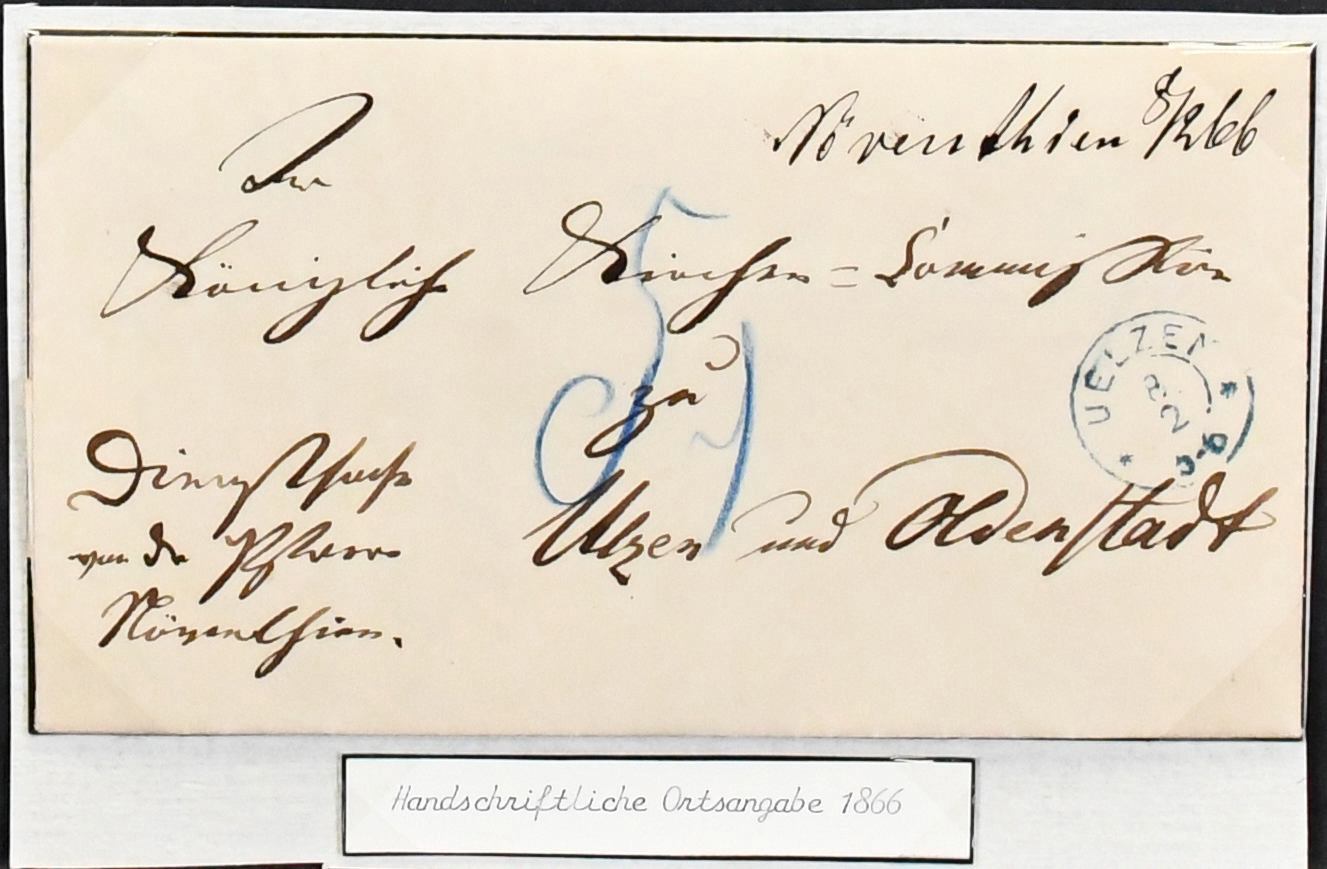 Növenthien 8/2 66
An
Königliche Kirchen=Commission
zu
Uelzen und Oldenstadt
UELZEN
8
2
5-6
Dienstsache
von der Pfarre
Növenthien.
Handschriftliche Ortsangabe 1866